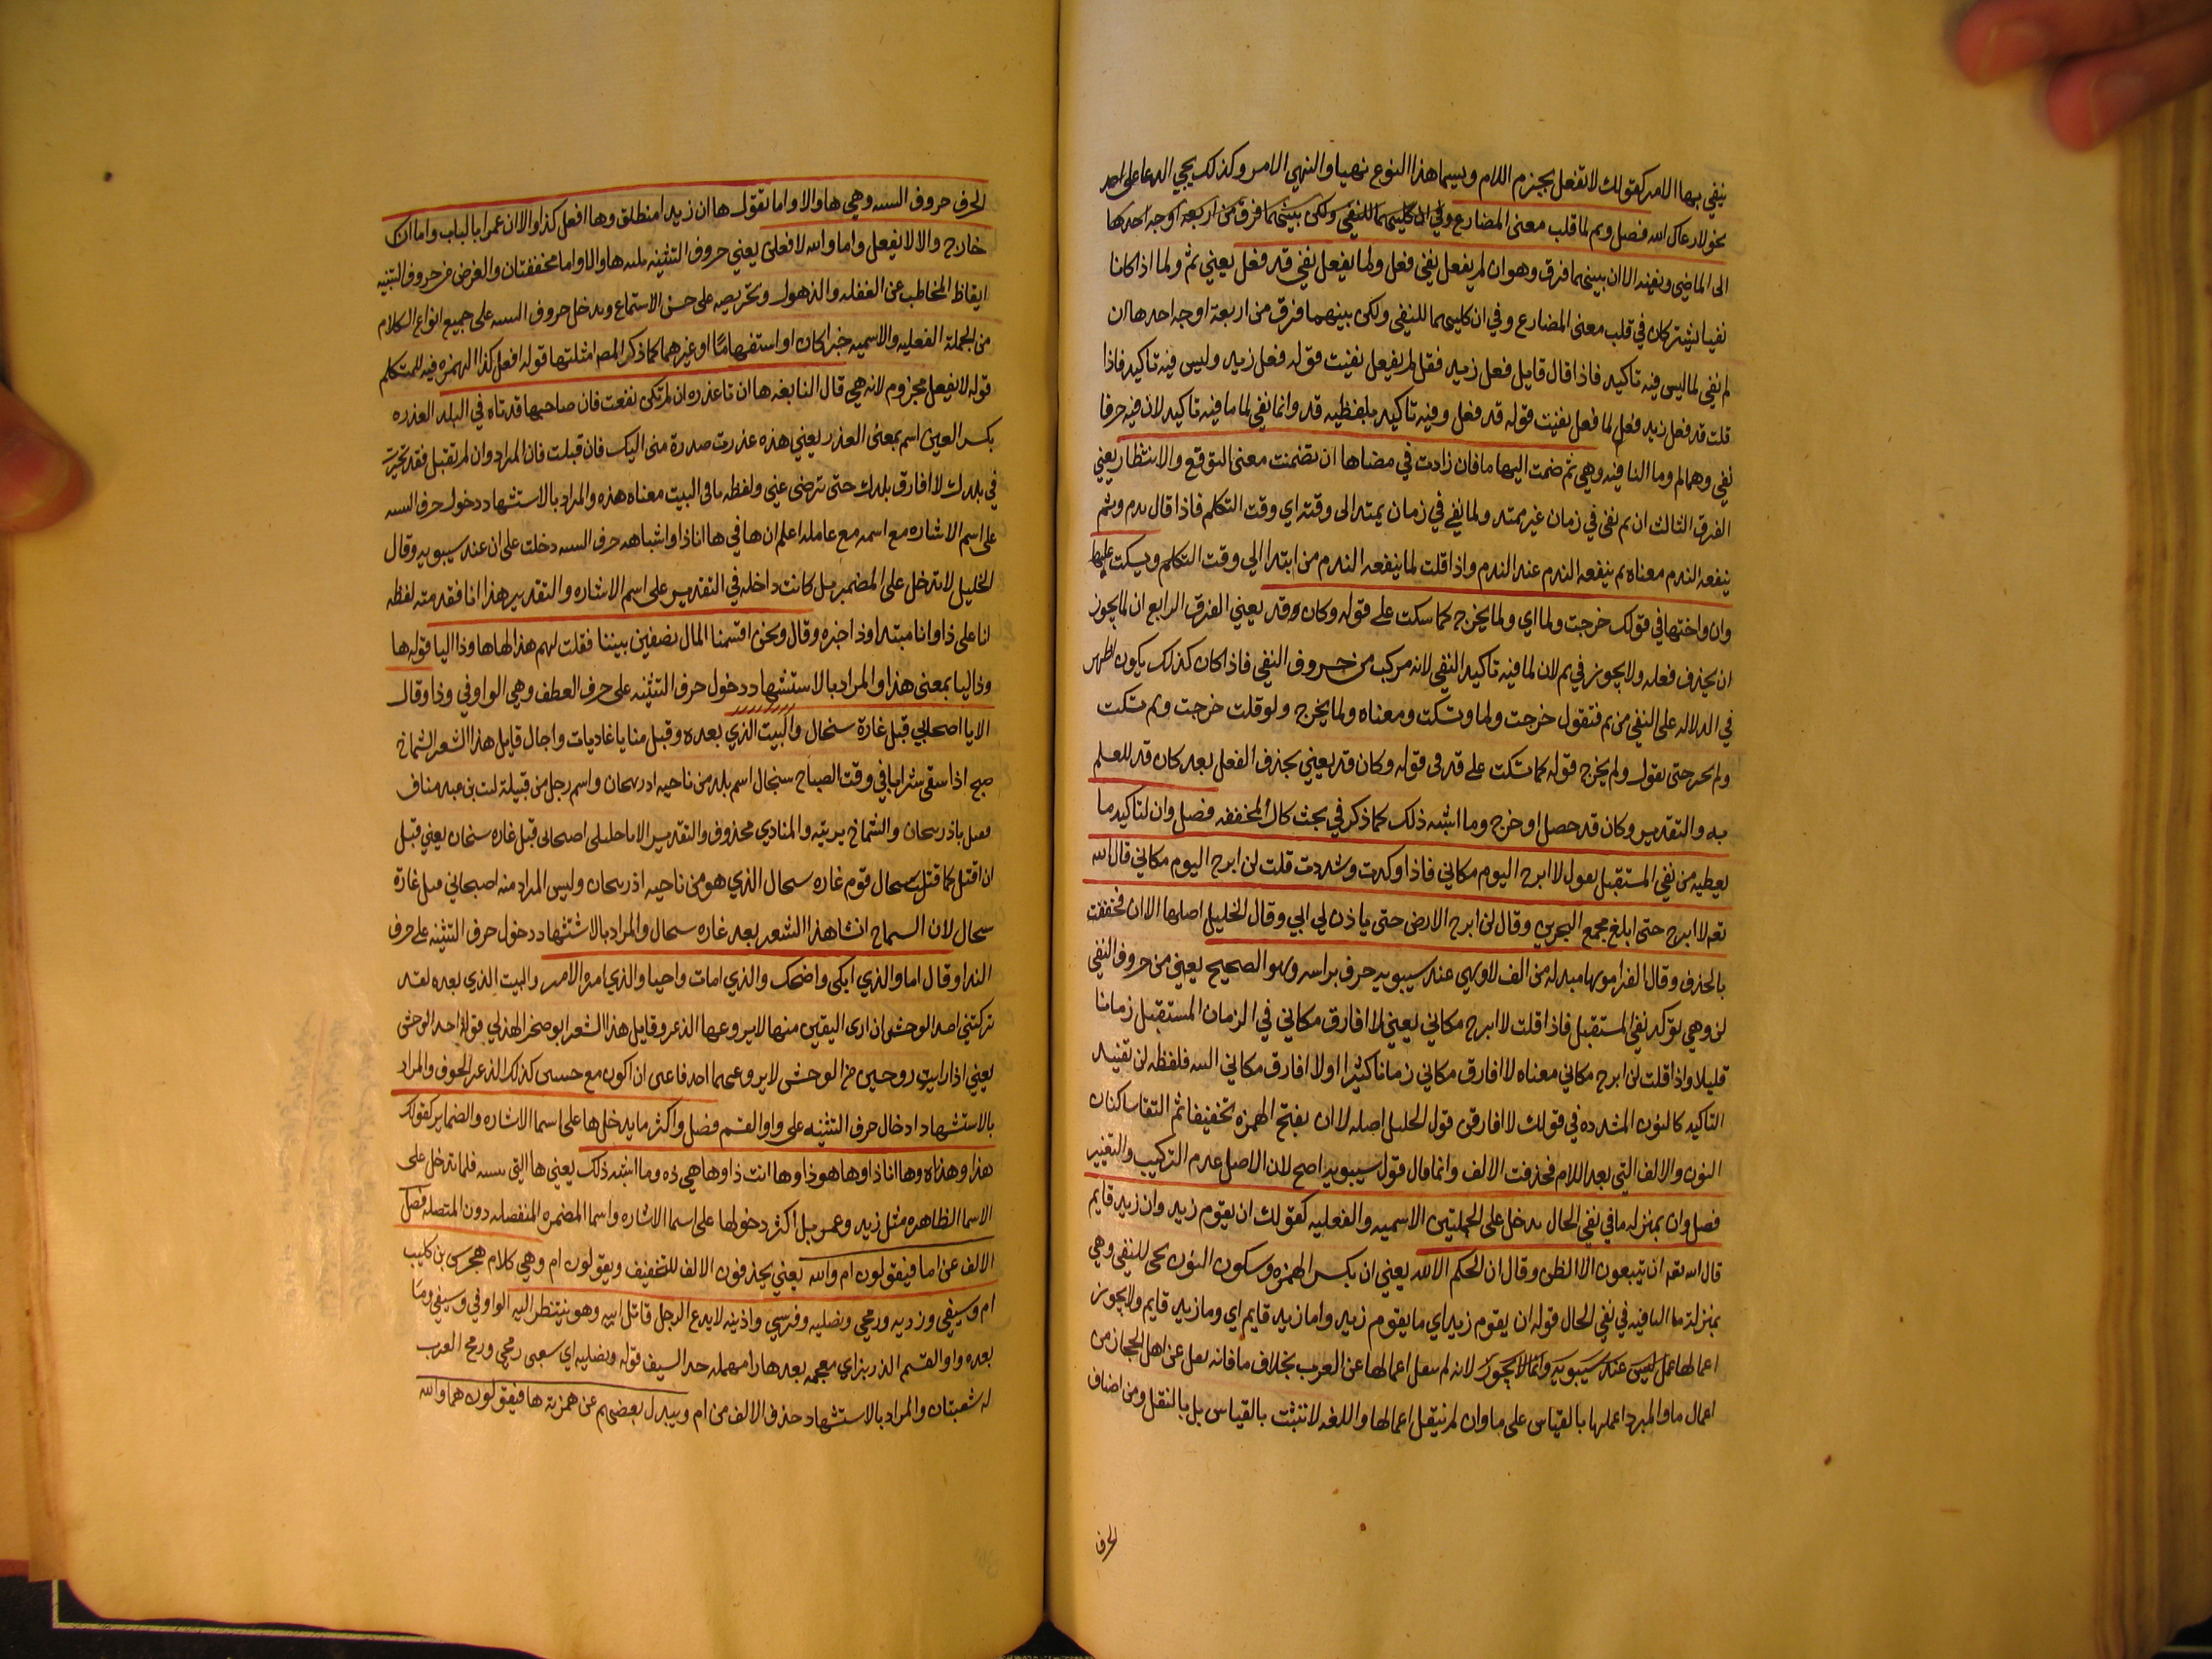 ينفي بها الامر كقولك لا تفعل بجزم اللام ويسما هذا النوع نهيا والنهي الامر وكذلك يجي الدعا على احد
نحو لا رعاك الله فصل ولم لما قلب معنى المضارع وفي ان كليهما للنفي ولكن بينهما فرق من اربعة اوجه احدها
الى الماضي ونفيه الا ان بينهما فرق وهو ان لم يفعل نفي فعل ولما يفعل نفي قد فعل يعني ثم ولما اذا كانا
نفيا يشتركان في قلب معنى المضارع وفي ان كليهما للنفي ولكن بينهما فرق من اربعة اوجه احدها ان
لم نفي لما ليس فيه تاكيد فاذا قال قايل فعل زيد فقل لم يفعل نفيت قوله فعل زيد وليس فيه تاكيد فاذا
قلت قد فعل زيد فعل لما فعل نفيت قوله قد فعل وفيه تاكيد بلفظه قد وانما نفي لما ما فيه تاكيد لان فيه حرفا
نفي وهما لم وما النافيه وهي لم ضمت اليها ما فان زادت في معناها ان تضمنت معنى التوقع والانتظار يعني
الفرق الثالث ان لم نفى في زمان غير ممتد ولما نفي في زمان يمتد الى وقته اي وقت التكلم فاذا قال ندم ولم
ينفعه الندم معناه لم ينفعه الندم عند الندم واذا قلت لما ينفعه الندم من ابتدا الي وقت التكلم ويسكت عليها
وان واختها في قولك خرجت ولما اي ولما يخرج كما سكت على قوله وكان وقد يعني الفرق الرابع ان لما يجوز
ان يحذف فعله ولا يجوز في لم لان لما فيه تاكيد النفي لانه مركب من حروف النفي فاذا كان كذلك يكون اظهر
في الدلاله على النفي من لم فتقول خرجت ولما وتسكت ومعناه ولما يخرج ولو قلت خرجت ولم تسكت
ولم يجز حتى يقول ولم يخرج قوله كما تسكت على قد في قوله وكان قد يعني بحذف الفعل بعد كان قد للعلم
به والتقدير وكان قد حصل او خرج وما اشبه ذلك كما ذكر في بحث كان المخففه فصل ولن لتاكيد ما
يعطيه من نفي المستقبل يقول لا ابرح اليوم مكاني فاذا وكدت وشددت قلت لن ابرح اليوم مكاني قال الله
تعه لا ابرح حتى ابلغ مجمع البحرين وقال لن ابرح الارض حتى ياذن لي ابي وقال الخليل اصلها لا ان فخففت
بالحذف وقال الفرا نونها مبدله من الف لا وهي عند سيبويه حرف براسه وهو الصحيح يعني من حروف النفي
لن وهي توكد نفي المستقبل فاذا قلت لا ابرح مكاني يعني لا افارق مكاني في الزمان المستقبل زمانا
قليلا واذا قلت لن ابرح مكاني معناه لا افارق مكاني زمانا كثيرا او لا افارق مكاني البته فلفظه لن تفيد
التاكيد كالنون المشدده في قولك لا افارقن قول الخليل اصله لا ان بفتح الهمزه تخفيفا ثم التقا ساكنان
النون والالف التي بعد اللام فحذفت الالف وانما قال قول سيبويه اصح لان الاصل عدم التركيب والتغيير
فصل وان بمنزله ما في نفي الحال يدخل على الجملتين الاسميه والفعليه كقولك ان يقوم زيد وان زيد قايم
قال الله تعه ان تتبعون الا الظن وقال ان الحكم الا لله يعني ان بكسر الهمزه وسكون النون يجي للنفي وهي
بمنزلة ما النافيه في نفي الحال قوله ان يقوم زيد اي ما يقوم زيد واما زيد قايم اي وما زيد قايم ولا يجوز
اعمالها عمل ليس عند سيبويه وانما لا يجوز لانه لم ينقل اعمالها عن العرب بخلاف ما فانه نقل عن اهل الحجاز من
اعمال ما والمبرد اعملها بالقياس على ما وان لم ينقل اعمالها واللغه لا تثبت بالقياس بل بالنقل ومن اصناف
الحرف
الحرف حروف التنبيه وهي ها والا واما تقول ها ان زيدا منطلق وها افعل كذا والا ان عمرا بالباب واما انك
خارج والا لا يفعل واما والله لا فعلن يعني حروف التنبيه ثلثه ها والا واما مخففتان والغرض من حروف التنبيه
ايقاظ المخاطب عن الغفله والذهول وتحريصه على حسن الاستماع ويدخل حروف التنبيه على جميع انواع الكلام
من الجملة الفعليه والاسميه خبرا كان او استفهاما او غيرهما كما ذكر المص امثلتها قوله افعل كذا الهمزه فيه للمتكلم
قوله لا يفعل مجزوم لانه نهي قال النابغه ها ان تا عذره ان لم تكن نفعت فان صاحبها قد تاه في البلد العذره
بكسر العين اسم بمعنى العذر يعني هذه عذرت صدرة منى اليك فان قبلت فان المراد وان لم تقبل فقد تحيرت
في بلدك لا افارق بلدك حتى ترضى عني ولفظه تا في البيت معناه هذه والمراد بالاستشهاد دخول حرف التنبيه
على اسم الاشاره مع اسمه مع عامله اعلم ان ها في ها انا ذا واشباهه حرف التنبيه دخلت على ان عند سيبويه وقال
الخليل لا تدخل على المضمر بل كانت داخله في التقدير على اسم الاشاره والتقدير هذا انا فقدمته لفظه
انا على ذا وانا مبتدا وذا خبره وقال ونحن اقتسمنا المال نصفين بيننا فقلت لهم هذا لها ها وذا ليا قوله ها
وذا ليا بمعنى هذا والمراد بالاستشهاد دخول حرف التنبيه على حرف العطف وهي الواو في وذا وقال
الا يا اصحابي قبل غارة سنجال والبيت الذي بعده وقبل منايا غاديات واجال قايل هذا الشعر الشماخ
صبح اذا سقى شرابا في وقت الصباح سنجال اسم بلد من ناحيه اذربيجان واسم رجل من قبيلة بن عبد مناف
باذربيجان والشماخ يرثيه والمنادي محذوف والتقدير الا يا خليلي اصبحاني قبل غاره سنجال يعني قبل
ان اقتل كما قتلت سنجال قوم غاره سنجال الذي هو من ناحيه اذربيجان وليس المراد منه اصبحاني قبل غارة
سنجال لان الشماخ انشا هذا الشعر بعد غاره سنجال والمراد بالاستشهاد دخول حرف التنبيه على حرف
الندا وقال اما والذي ابكى واضحك والذي امات واحيا والذي امره الامر والبيت الذي بعده لقد
تركتني احسد الوحش ان ارى اليفين منها لا يروعها الذعر وقايل هذا الشعر ابو صخر الهذلي قوله احسد الوحش
يعني اذا رايت زوجين من الوحش لا يروعهما احد ان اكون مع كذلك الذعر الخوف والمراد
بالاستشهاد ادخال حرف التنبيه على واو القسم فصل واكثر ما يدخل ها على اسما الاشاره والضماير كقولك
هذا وهذه وها انا ذا وها هو ذا وها انت ذا وها هي ذه وما اشبه ذلك يعني ها التي تنبيه فلما تدخل على
الاسما الظاهره مثل زيد وعمر بل اكثر دخولها على اسما الاشاره واسما المضمره المنفصله دون المتصله فصل
الالف عن اما فيقولون ام والله يعني يحذفون الالف للتخفيف ويقولون ام وهي كلام هجرس بن كليب
ام وسيفي وزريه ورمحي ونصليه وفرسي واذنيه لا يدع الرجل قاتل ابيه وهو ينتظر اليه الواو في وسيفي وما
بعده واو القسم الزر بزاي معجمه بعدها را مهمله حد السيف قوله ونصليه اي رمحي ورمح العرب
له شعبتان والمراد بالاستشهاد حذف الالف من ام ويبدل بعضهم عن همزته ها فيقولون هما والله